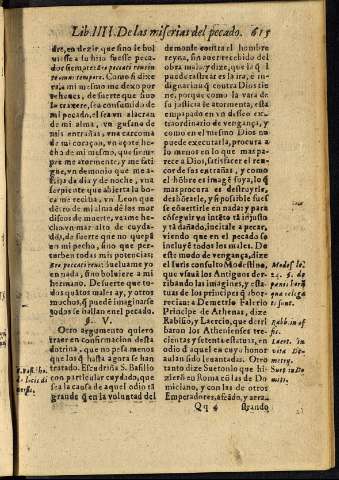 Lib. IIII. De las miserias del pecado. 615
dre, en dezir, que sino se bol
uiesse a su hijo fuesse peca-
dor siempre:
Como si dixe
ra, a mi mesmo me doy por
rehenes, de suerte que sino
la traxere, sea consumido de
mi pecado, el sea vn alacran
de mi alma, vn gusano de
mis entrañas, vna carcoma
de mi coraçon, vn açote he-
cho de mi mismo, que siem-
pre me atormente, y me fati
gue, vn demonio que me a-
flija da dia y de noche, vna
serpiente que abierta la bo-
ca me reciba, vn Leon que
dẽtro de mi alma dè los mor
discos de muerte, vaya me he-
cho vn mar alto de cuyda-
dos, de suerte que no quepã
en mi pecho, sino que per-
turben todas mis potencias,
Ero peccati reus. bueluame yo
en nada, sino boluiere a mi
hermano. Desuerte que to-
dos quãtos males ay, y otros
muchos, q̃ puedẽ imaginarse
todos se hallan en el pecado.
§. V.
Otro argumento quiero
traer en confirmacion desta
dotrina, que no pesa menos
que los q̃ hasta agora se han
tratado. Escudriña S. Basilio
con particular cuydado, que
sea la causa de aquel odio tã
grande q̃ en la voluntad del
demonio contra el hombre
reyna, sin auer recebido del
obra mala, y dize, que la q̃ le
puede rastrear es la ira, e indi-
gnaria q̃ contra Dios tie
ne, porque como la vara de
su justicia le atormenta, esta
empapado en vn deseo ex-
traordinario de vengança, y
como en el mesmo Dios no
puede executarla, procura a
lo menos en lo que mas pare-
ce a Dios, satisfacer el ren-
cor de sus entrañas, y como
el hõbre es imagẽ suya, lo q̃
mas procura es destruyrle,
deshazerle, y si posible fues
se conuertirle en nada; y para
cõseguir vn intẽto tã injusto
y tã dañado, incitale a pecar,
viendo que en el pecado se
incluyẽ todos los males. De
este modo de vengança, dize
el Iuris consulto Modestino,
que vsauã los Antiguos der-
ribando las imagines, y esta-
tuas de los principes q̃ abor-
recian: a Demetrio Falerio
Principe de Athenas, dize
Rabisio, y Laercio, que derri
baron los Athenienses tre-
cientas y setenta estatuas, en
odio de aquel en cuyo honor
auian sido leuantadas. Otro
tanto dize Suetonio que hi-
zierõ en Roma cõ las de Do-
miciano, y con las de otros
Emperadores, afeãdo, y arra-
Qq 4 strando
in vita De
metry.